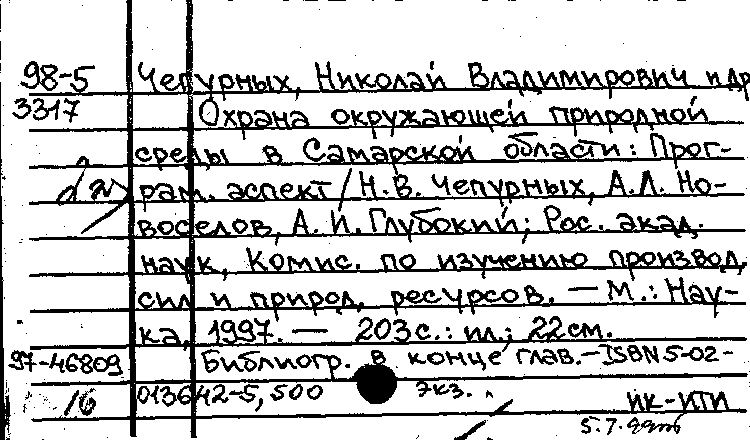 98-5 Чепурных, Николай Владимирович и др
3317 Охрана окружающей природной
среды в Самарской области: Прог-
рам. аспект / Н.В. Чепурных, А.Л. Но-
воселов, А.И. Глубокий; Рос. акад.
наук, Комис. по изучению производ.
сил и природ. ресурсов. — М.: Нау-
ка, 1997. — 203с.: ил.; 22см.
97-46809 Библиогр. в конце глав. — ISBN 5-02-
16 013642-5, 500 экз.
ИК-ИТИ